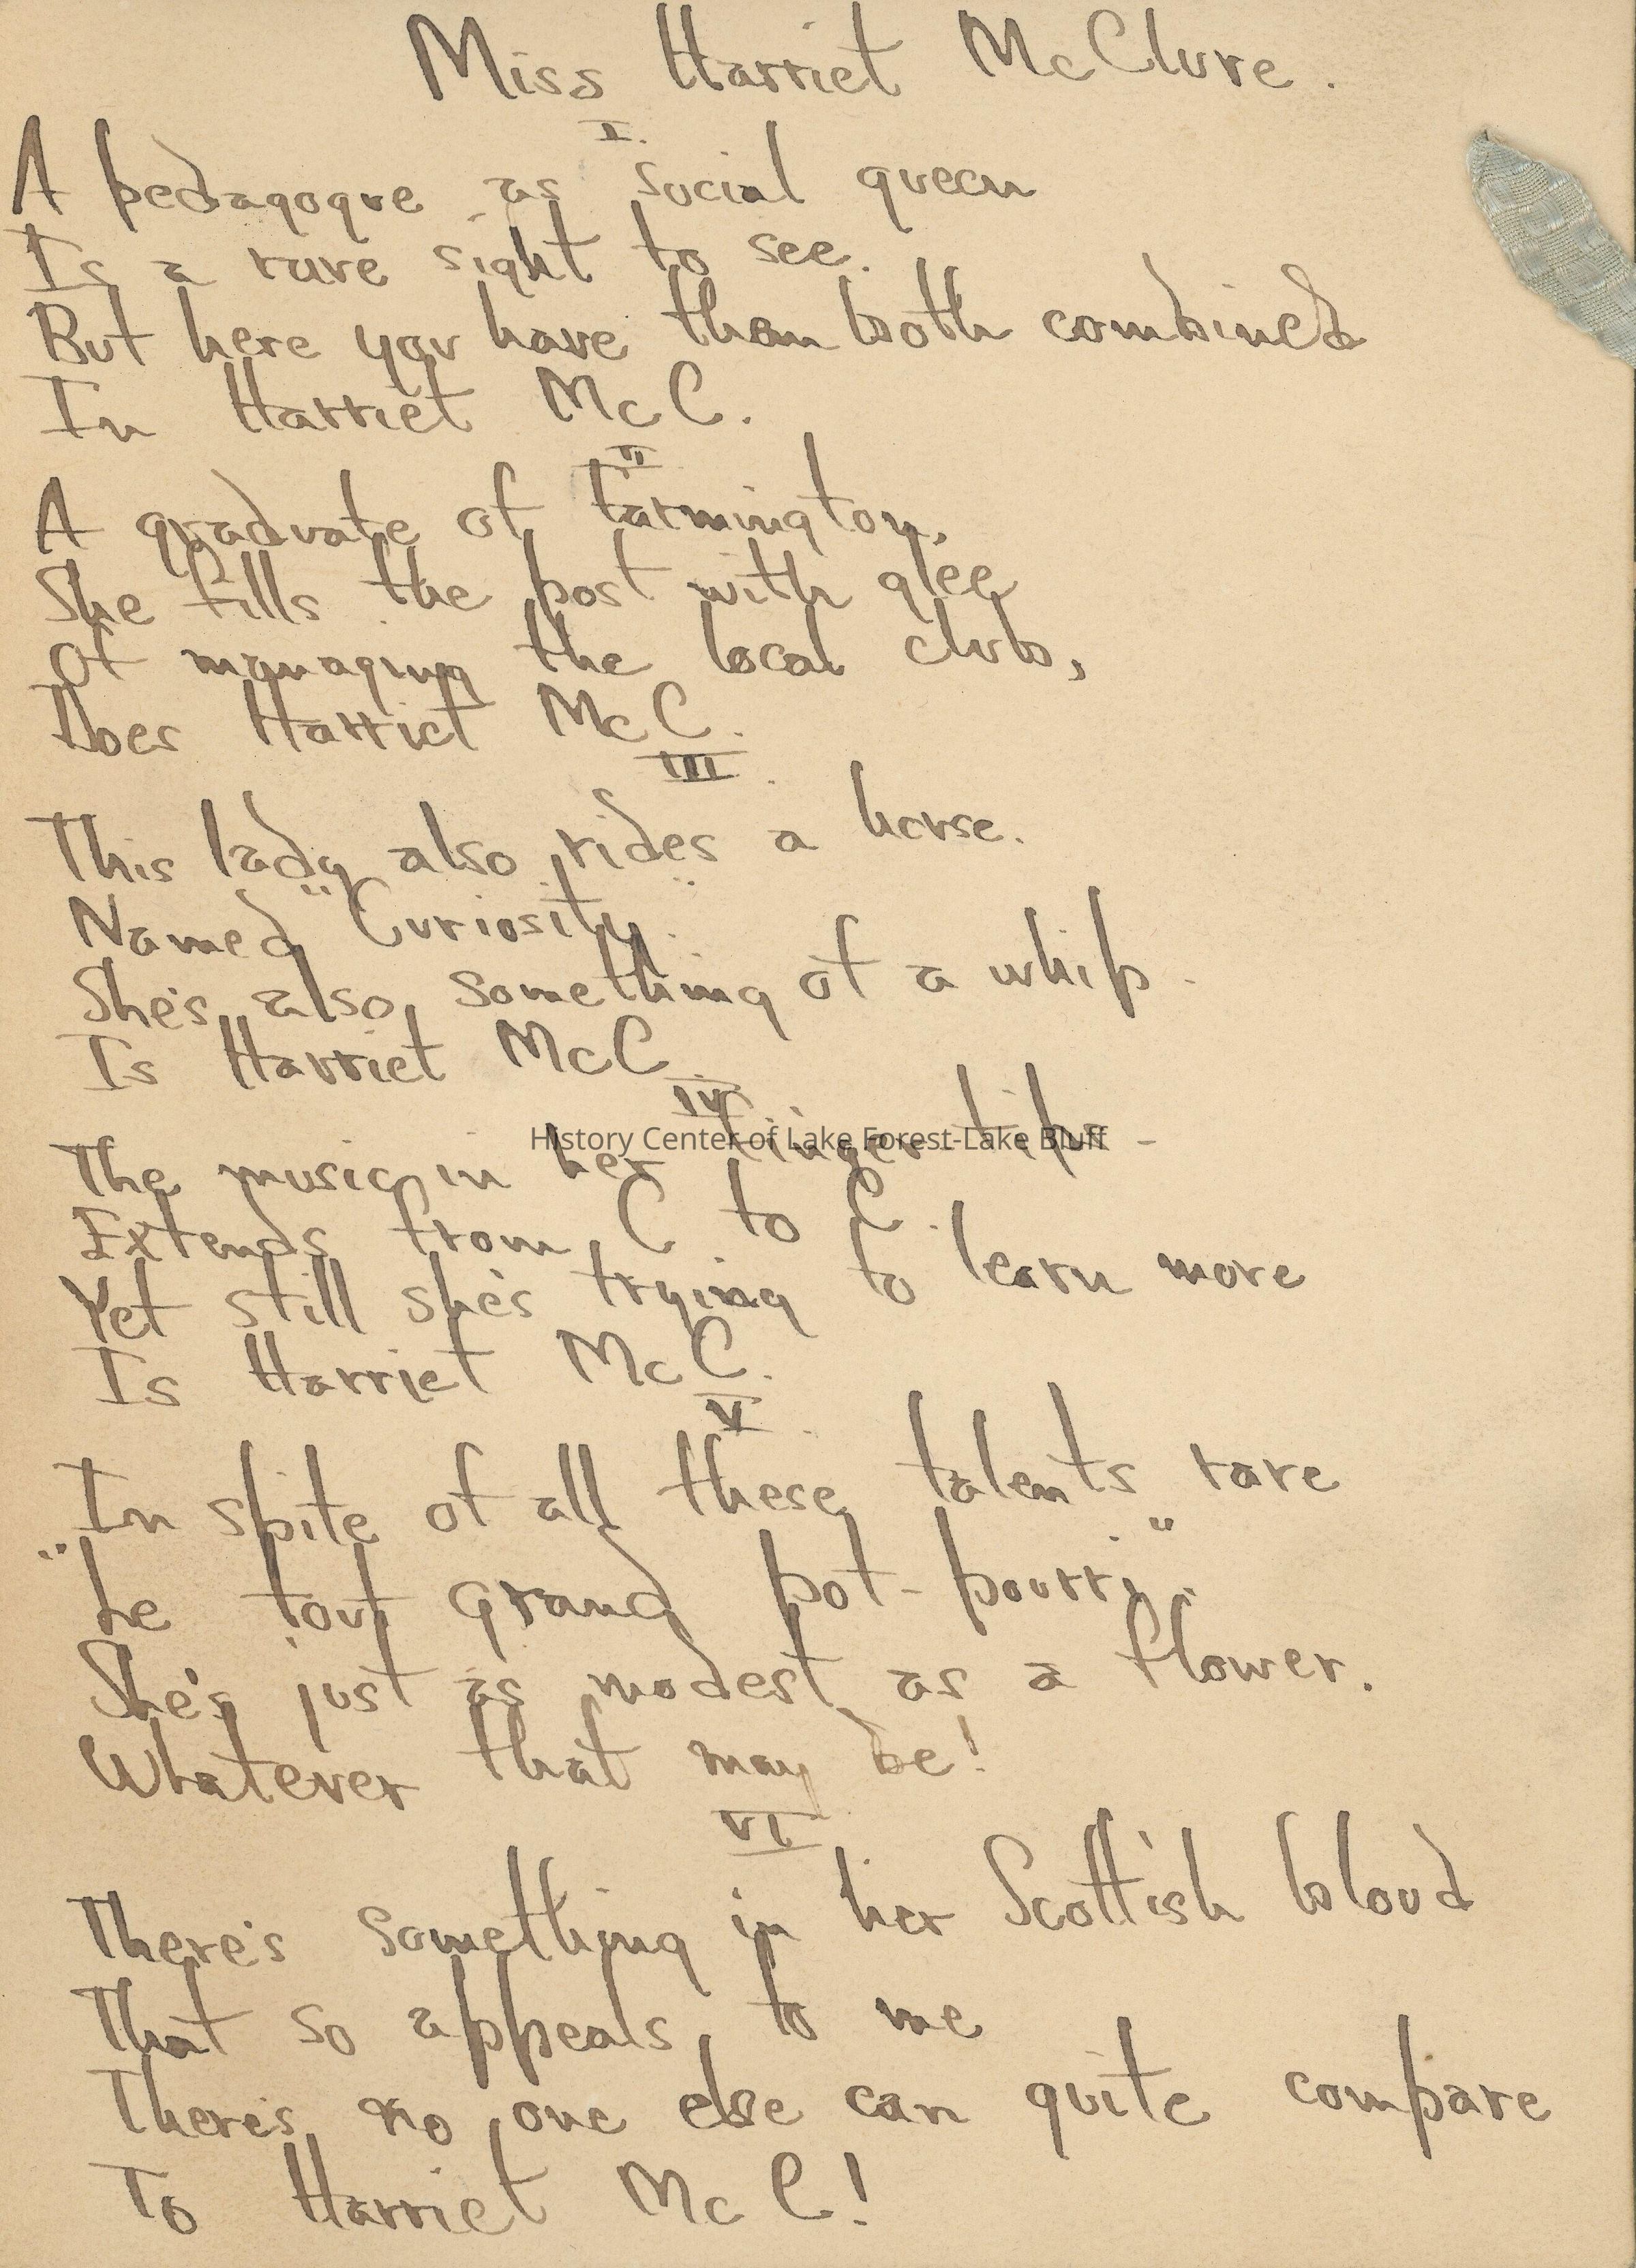 Miss Harriet McClure.
I.
A pedagogue as social queen
Is a rare sight to see.
But here you have them both combined
In Harriet McC.
II
A graduate of Farmington,
She fills the post with glee
Of managing the local club,
Does Harriet McC.
III.
This lady also rides a horse.
Named "Curiosity".
She's also something of a whip.
Is Harriet McC.
IV
The music in her finger tips -
History Center of Lake Forest-Lake Bluff
Extends from C to C.
Yet still she's trying to learn more
Is Harriet McC.
V.
In spite of all these talents rare
"Le tout grand pot-pourri".
She's just as modest as a flower.
Whatever that may be!
VI
There's something in her Scottish blood
That so appeals to me
There's no one else can quite compare
To Harriet McC!